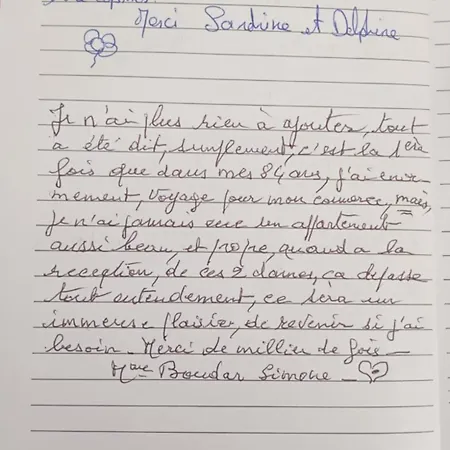 Merci Sandrine et Delphine
Je n'ai plus rien à ajouter, tout
a été dit, simplement, c'est la 1era
fois que dans mes 84 ans, j'ai enor
mement, voyage pour mon commerce, mais,
Je n'ai jamais eue un appartement
aussi beau, et propre, quand a la
reception, de ces 2 dames, ça depasse
tout entendement, ce sera un
immense plaisir, de revenir si j'ai
besoin - Merci de millier de fois -
Mme Boudar Simone -